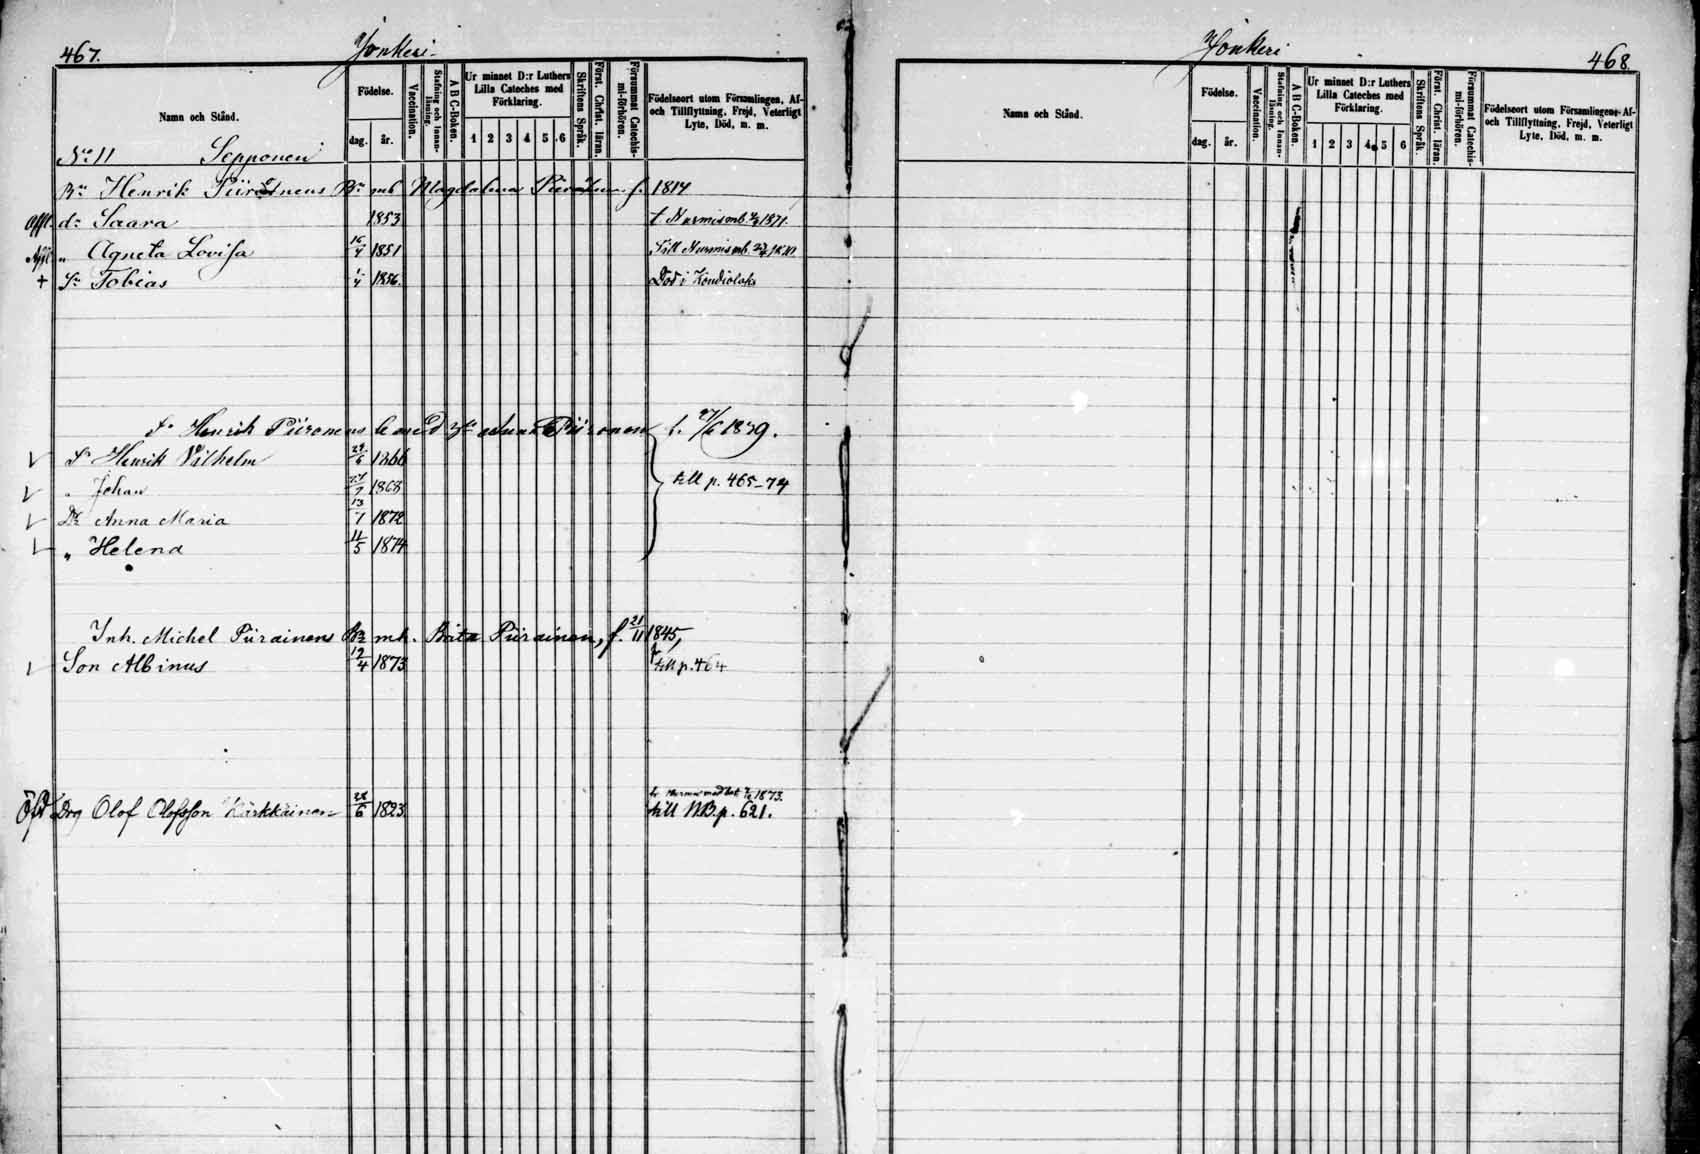 467. Jonkeri
Namn och Stånd.
Födelse.
dag. år.
Vaccination.
Stafning och Innanläsning.
A B C-Boken.
Ur minnet D:r Luthers Lilla Cateches med Förklaring.
1 2 3 4 5 6
Skriftens Språk.
Först. Christ. läran.
Försummat Catechismi-förhören.
Födelseort utom Församlingen, Af- och Tillflyttning, Frejd, Veterligt Lyte, Död, m. m.
No 11 Sepponen
Henrik mb Magdalena f. 1814
dr Saara 1853 t. Nurmis mb. 1871.
" Agneta Lovisa 16/4 1851 Till Nurmis mb.
+ Sn Tobias 1856. Död i Kondiolaks
Sn Henrik Piironens Anna Piironen f. 27/6 1839.
Sn Henrik Vilhelm 1866
" Johan 1868 till p. 465-74
Dr Anna Maria 13/7 1872
" Helena 11/5 1874
Inh. Michel Piirainens mh. Brita Piirainen, f. 21/11 1845,
Son Albinus 12/4 1873 till p. 464
Drg Olof Olofsson Kärkkäinen 28/6 1823 1873.
till NB. p. 621.
Jonkeri 468.
Namn och Stånd.
Födelse.
dag. år.
Vaccination.
Stafning och Innanläsning.
A B C-Boken.
Ur minnet D:r Luthers Lilla Cateches med Förklaring.
1 2 3 4 5 6
Skriftens Språk.
Först. Christ. läran.
Försummat Catechismi-förhören.
Födelseort utom Församlingen, Af- och Tillflyttning, Frejd, Veterligt Lyte, Död, m. m.